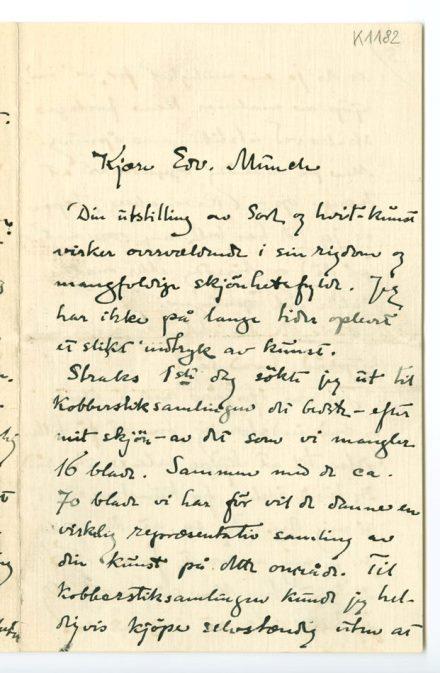 K1182
Kjære Edv. Münch
Din utstilling av Sort og hvit-kunst
virker overvældende i sin rigdom og
mangfoldige skjönhetsfylde. Jeg
har ikke på lange tider oplevet
et slikt indtryk av kunst.
Straks 1ste dag sökte jeg ut til
Kobberstiksamlingen det bedste – efter
mit skjön – av det som vi mangler
16 blade. Sammen med de ca.
70 blade vi har för vil de danne en
virkelig repræsentativ samling av
din kunst på dette område. Til
Kobberstiksamlingen kunde jeg hel-
digvis kjöpe selvstændig uten at